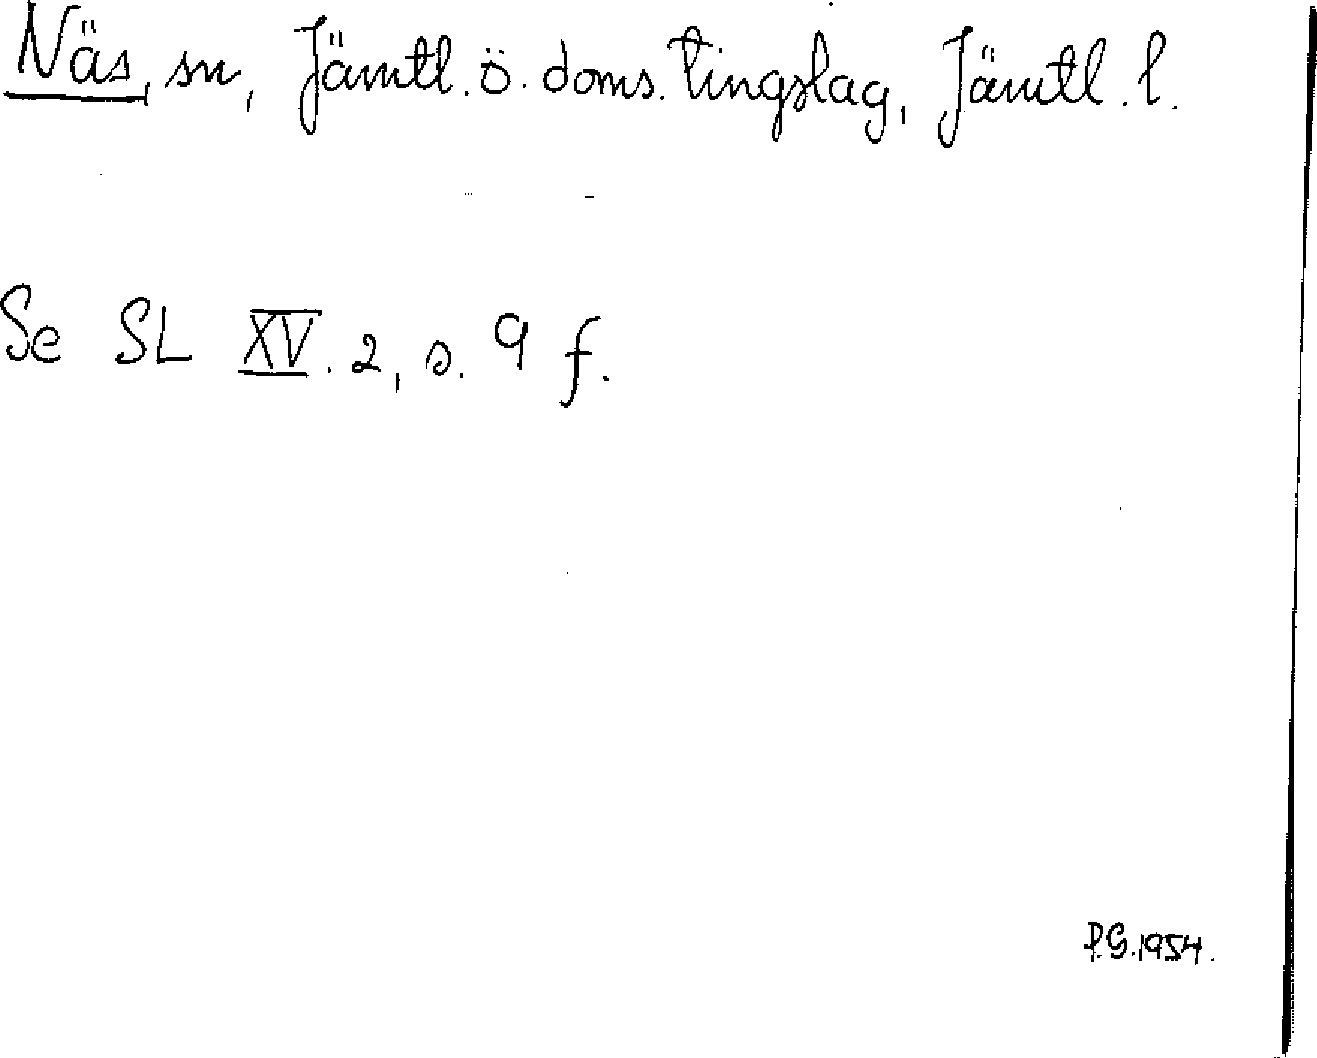 Näs, sn, Jämtl. ö. doms. tingslag, Jämtl. l.
Se SL XV. 2, s. 9 f.
P.G. 1954.